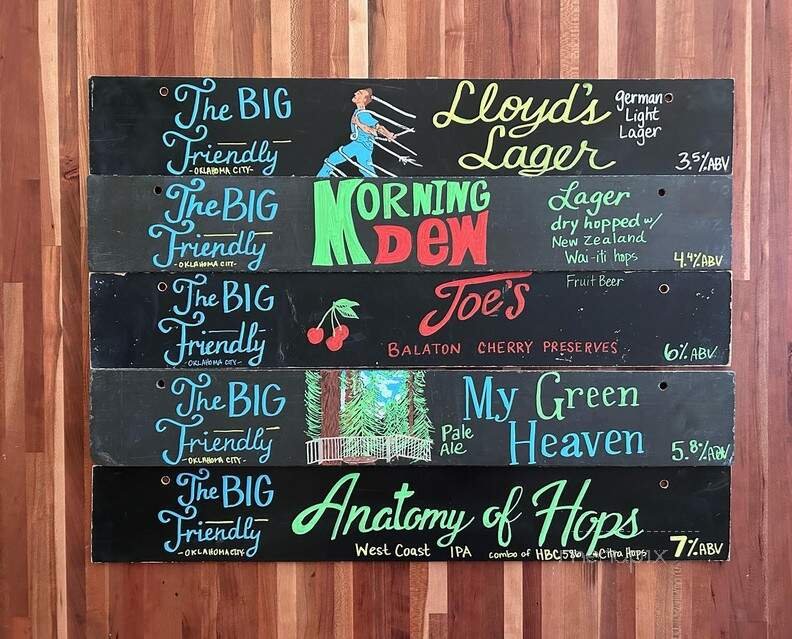 The BIG
Friendly
-OKLAHOMA CITY-
Lloyd's
Lager
german
Light
Lager
3.5% ABV
The BIG
Friendly
-OKLAHOMA CITY-
MORNING
DEW
Lager
dry hopped w/
New Zealand
Wai-iti hops
4.4% ABV
The BIG
Friendly
-OKLAHOMA CITY-
Joe's
BALATON CHERRY PRESERVES
Fruit Beer
6% ABV
The BIG
Friendly
-OKLAHOMA CITY-
Pale
Ale
My Green
Heaven
5.8% ABV
The BIG
Friendly
-OKLAHOMA CITY-
Anatomy of Hops
West Coast IPA combo of HBC 586 + Citra Hops
7% ABV